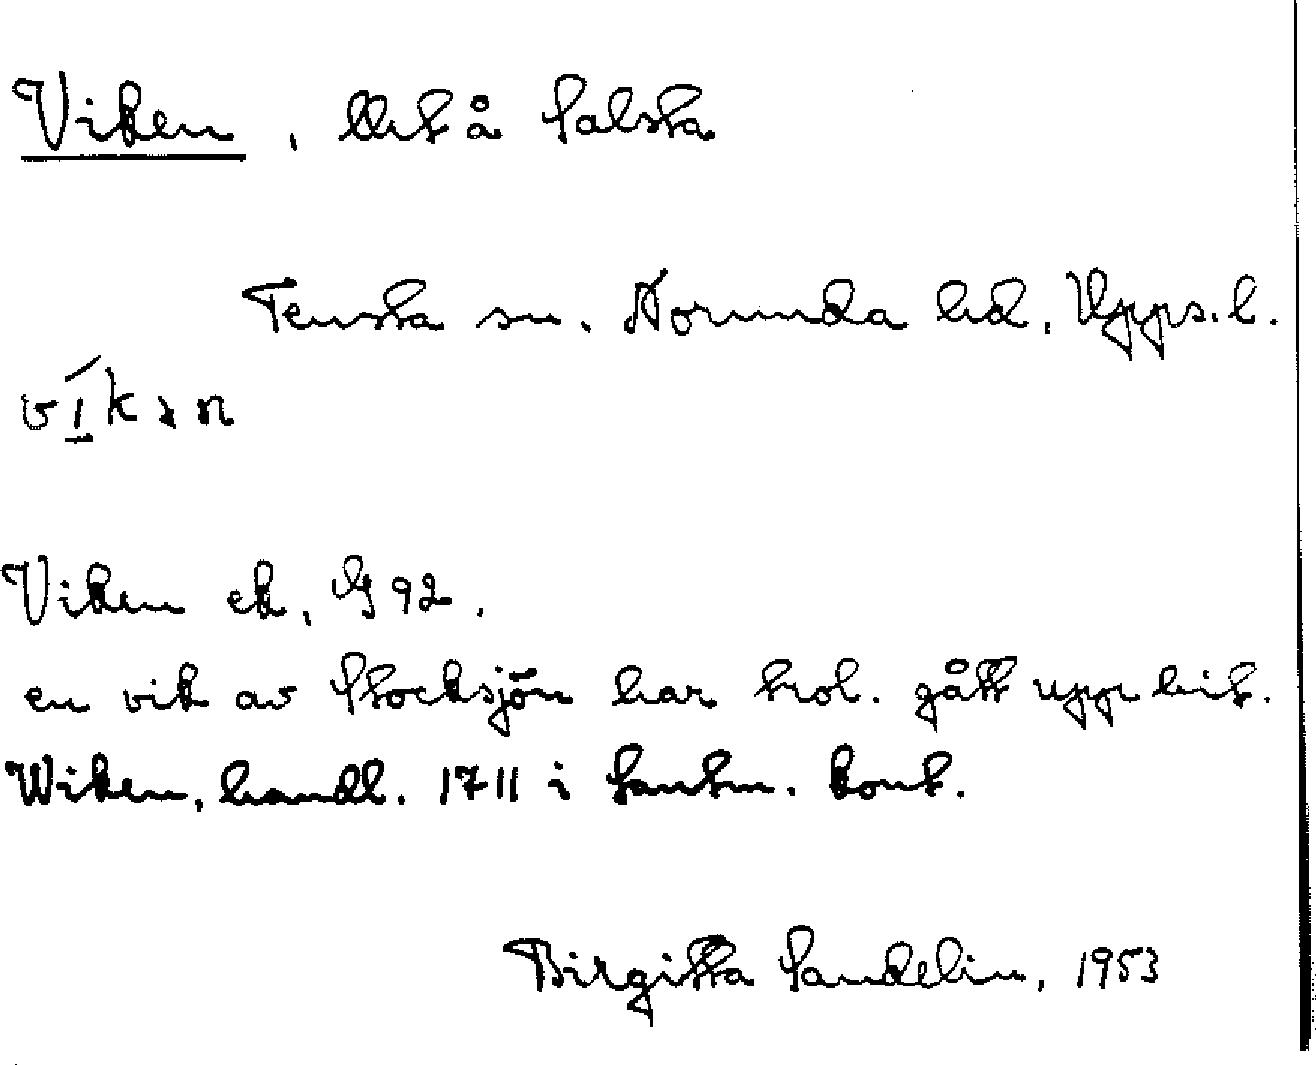 Viken, llt å Salsta
Tensta sn. Norunda hd, Upps. l.
Viken ek, G 92.
en vik av Stocksjön har trol. gått upp hit.
Wiken, handl. 1711 i Lantm. kont.
Birgitta Sandelin, 1953